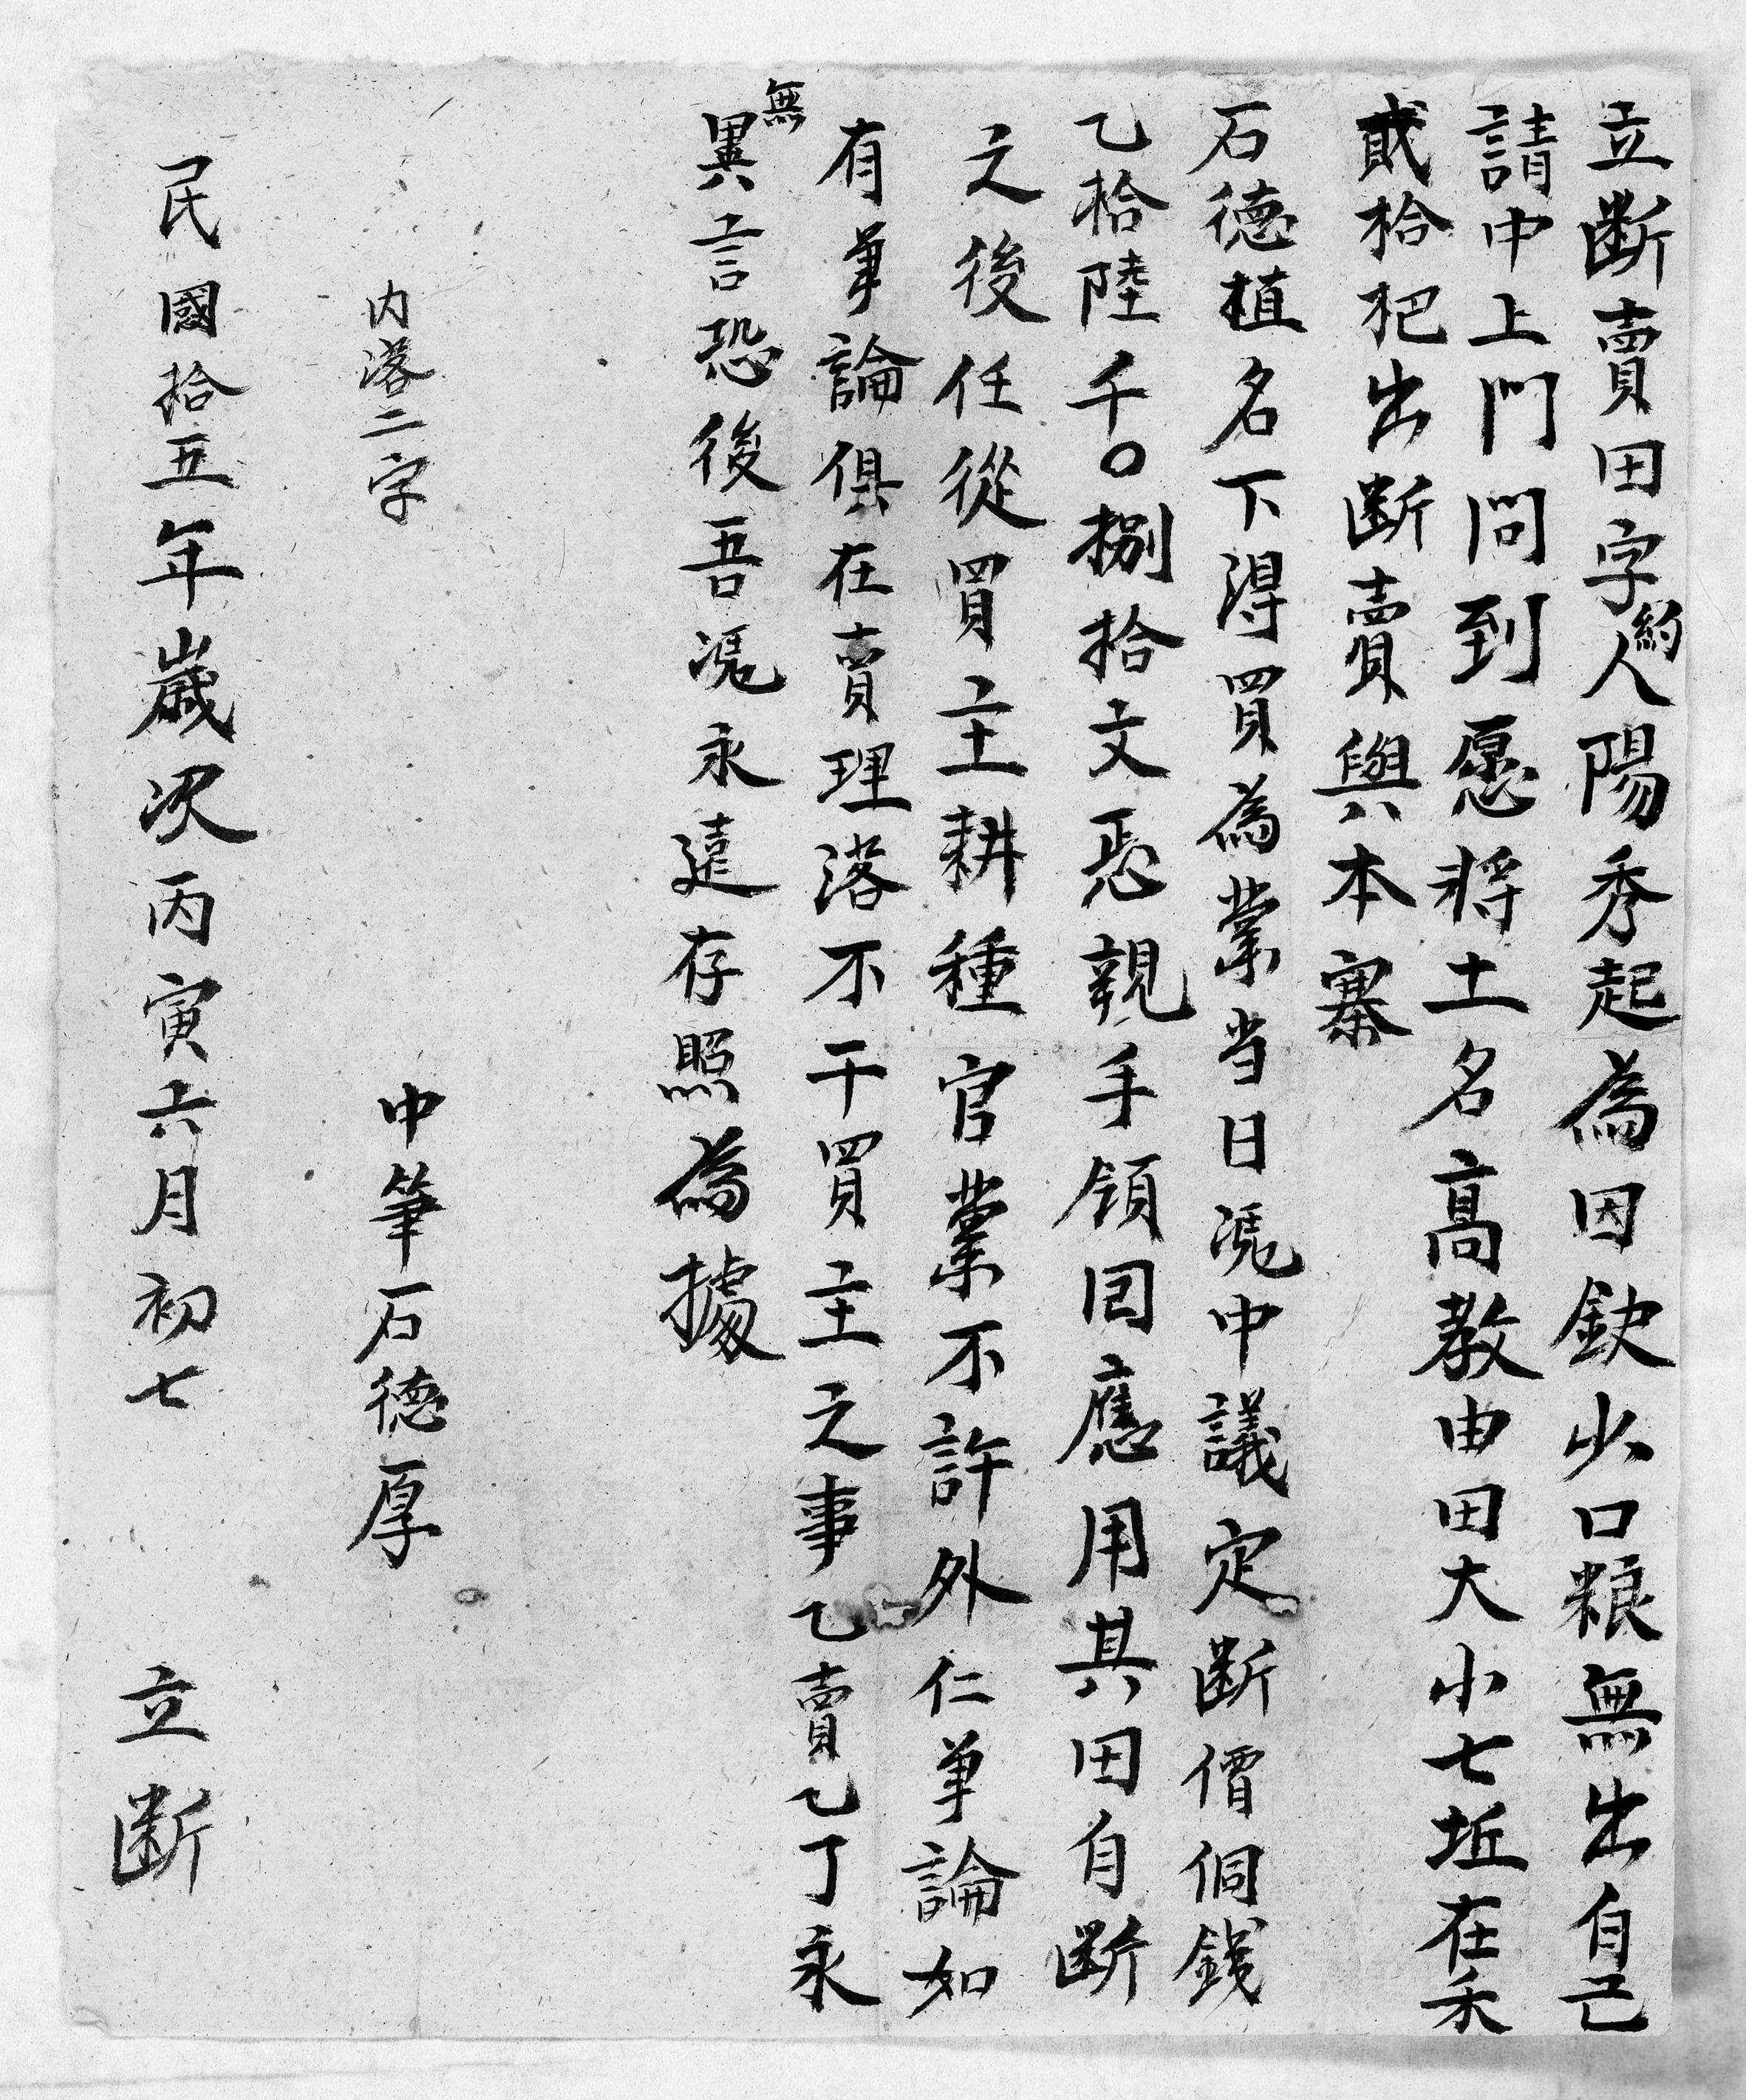 立断賣田字約人陽秀起為因鈌少口粮無出自己
請中上門問到愿將土名高教田田大小七坵在禾
貮拾把出断賣與本寨
石德植名下淂買為業当日凴中議定断價侗錢
乙拾陸千〇捌拾文悉親手領囬應用其田自断
之後任從買主耕種官業不許外仁爭論如
有爭論俱在賣理落不干買主之事乙賣乙了永
無異言恐後吾凴永遠存照為據
内落二字
中筆石德厚
民國拾五年歲次丙寅六月初七 立断